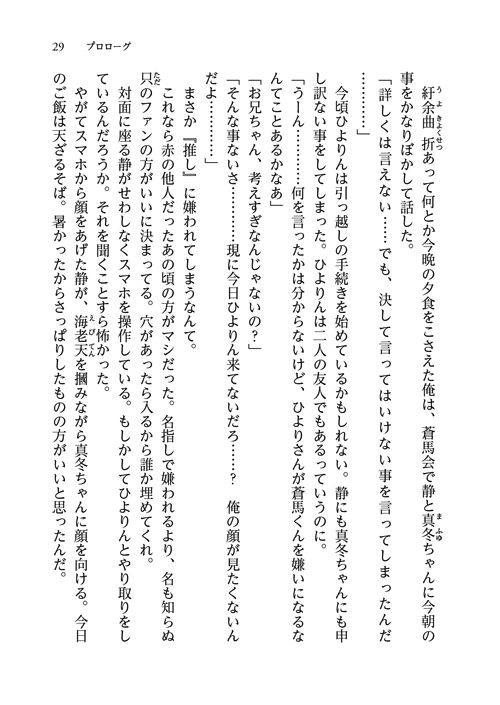 29　プロローグ
　紆余曲折あって何とか今晩の夕食をこさえた俺は、蒼馬会で静と真冬ちゃんに今朝の
事をかなりぼかして話した。
「詳しくは言えない……でも、決して言ってはいけない事を言ってしまったんだ
…………」
　今頃ひよりんは引っ越しの手続きを始めているかもしれない。静にも真冬ちゃんにも申
し訳ない事をしてしまった。ひよりんは二人の友人でもあるっていうのに。
「うーん…………何を言ったかは分からないけど、ひよりさんが蒼馬くんを嫌いになるな
んてことあるかなあ」
「お兄ちゃん、考えすぎなんじゃないの？」
「そんな事ないさ…………現に今日ひよりん来てないだろ……？　俺の顔が見たくないん
だよ…………」
　まさか『推し』に嫌われてしまうなんて。
　これなら赤の他人だったあの頃の方がマシだった。名指しで嫌われるより、名も知らぬ
只のファンの方がいいに決まってる。穴があったら入るから誰か埋めてくれ。
　対面に座る静がせわしなくスマホを操作している。もしかしてひよりんとやり取りをし
ているんだろうか。それを聞くことすら怖かった。
　やがてスマホから顔をあげた静が、海老天を摑みながら真冬ちゃんに顔を向ける。今日
のご飯は天ざるそば。暑かったからさっぱりしたものの方がいいと思ったんだ。